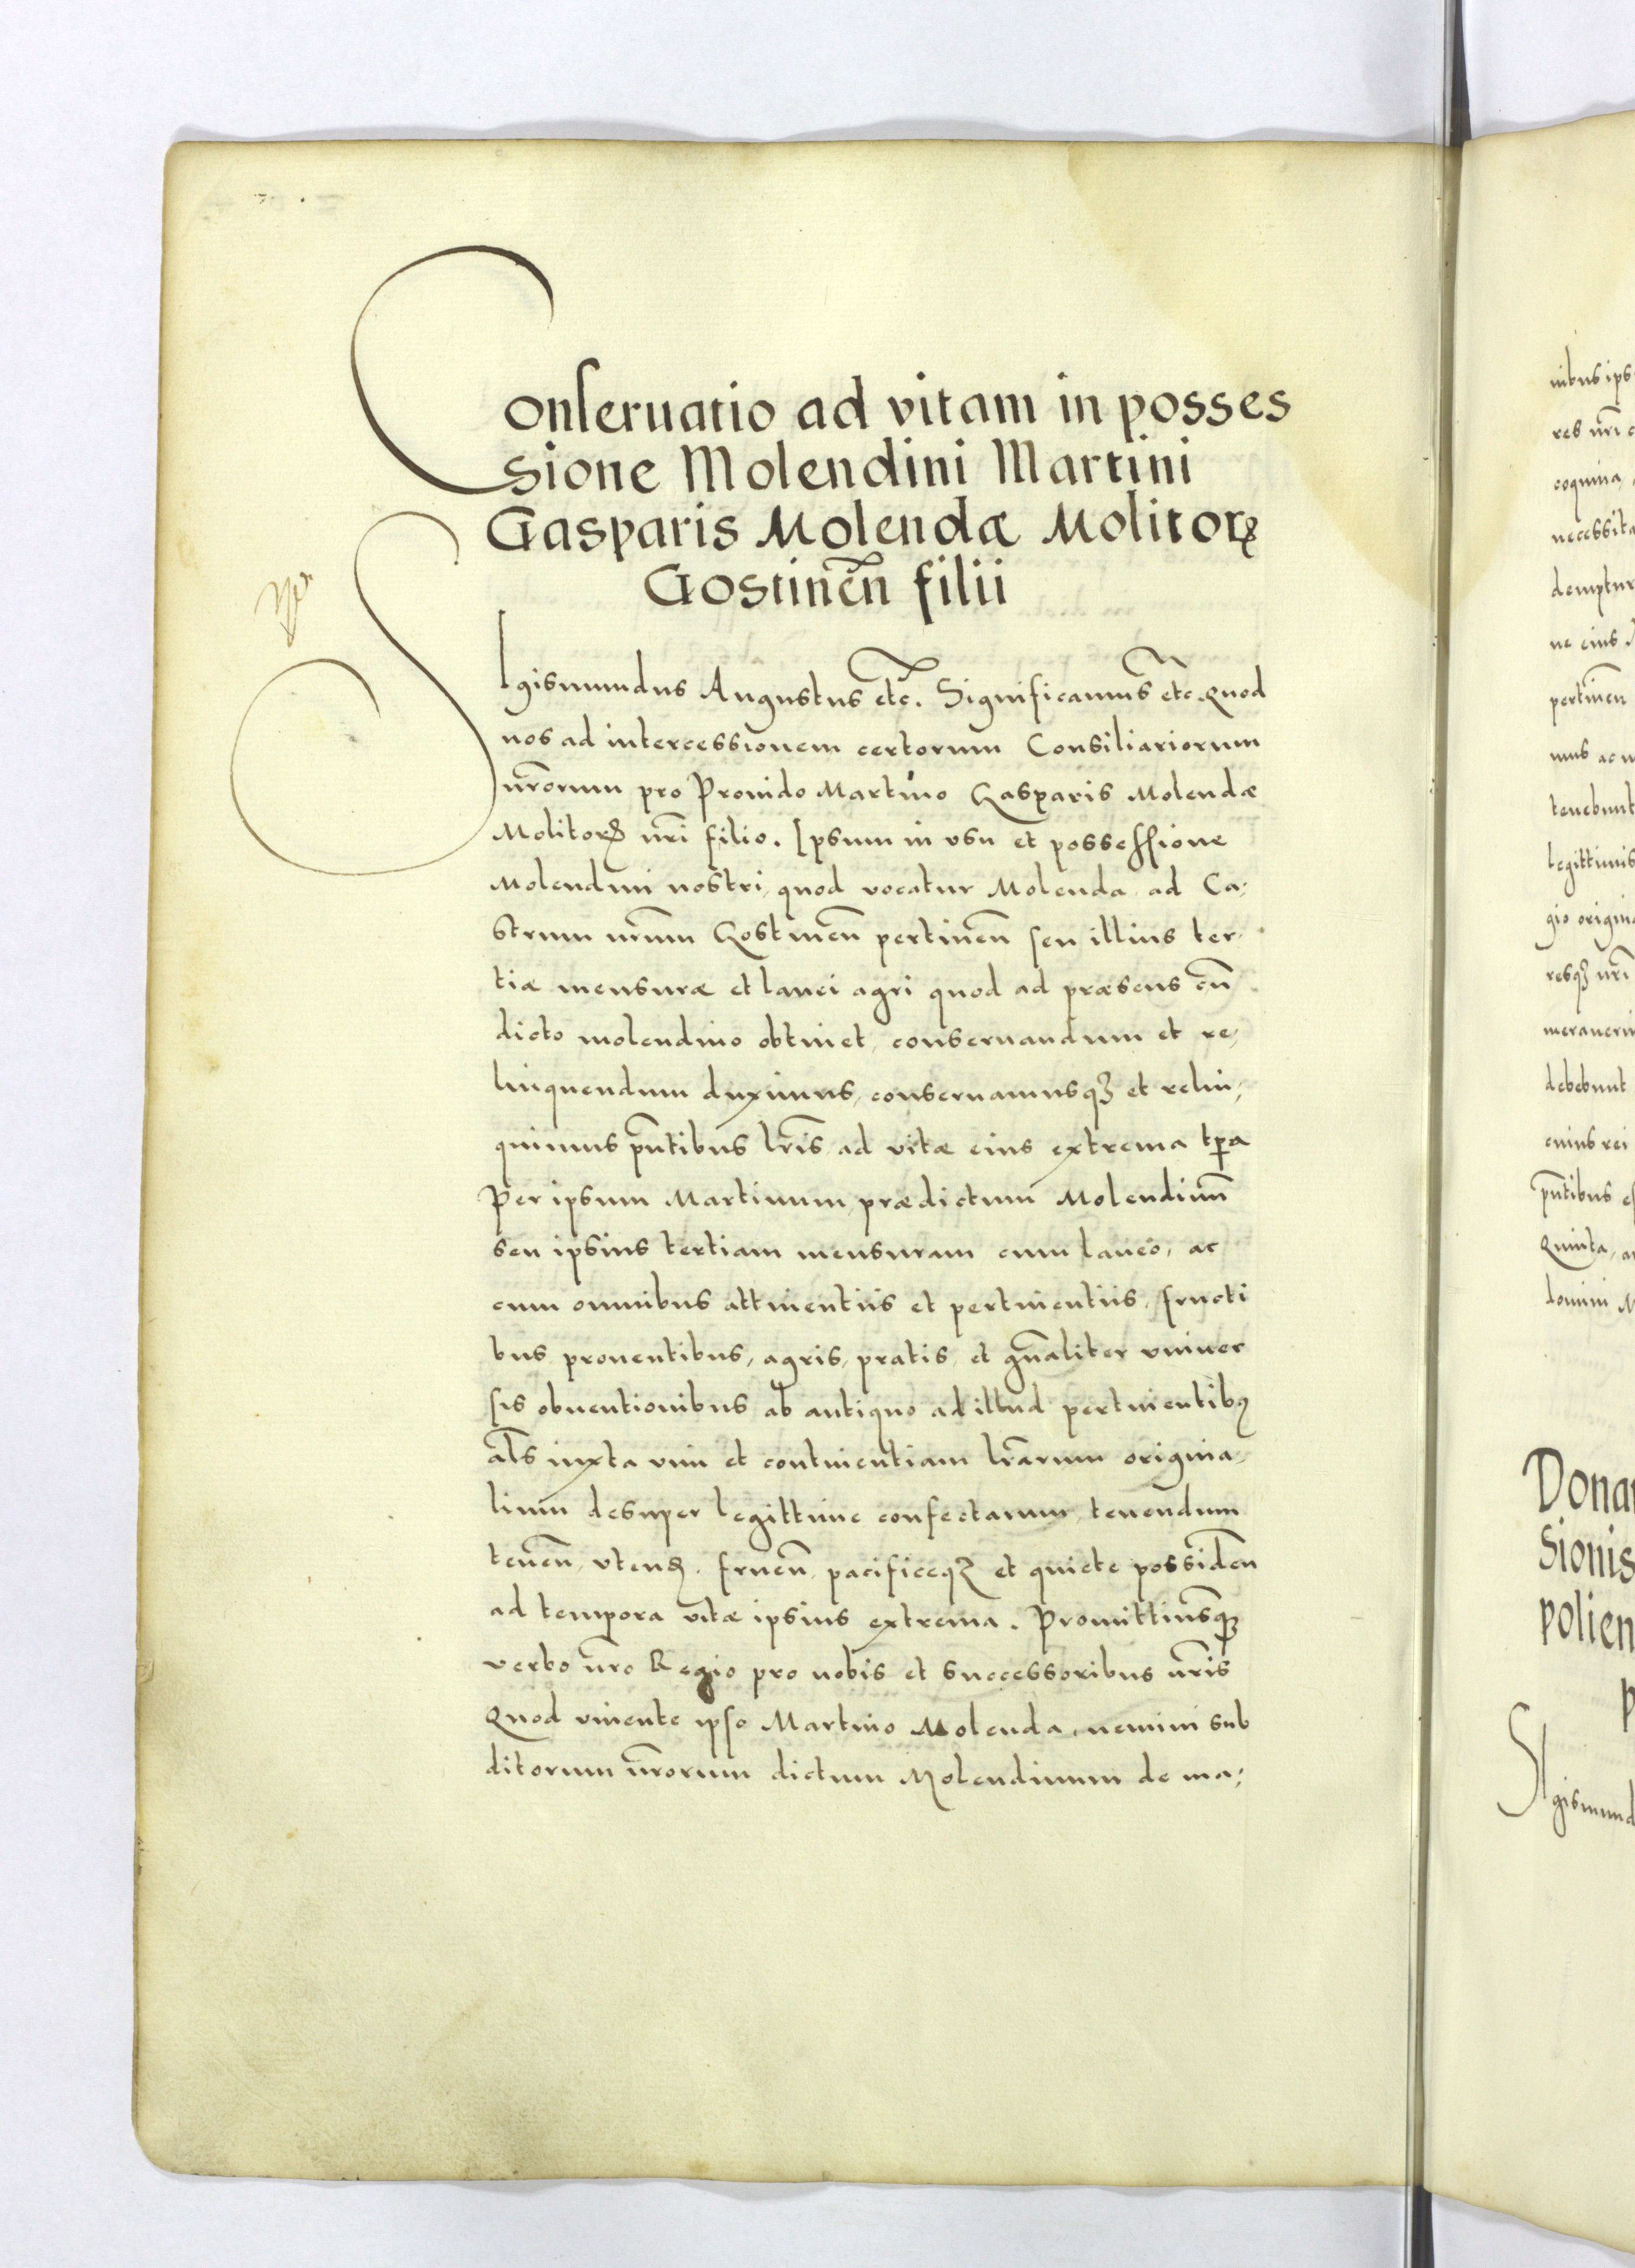 Conseruatio ad vitam in posses
sione Molendini Martini
Gasparis Molendæ Molitorꝫ
Gostineñ filii
SIgismundus Augustus etc. Significamus etc. Quod
nos ad intercessionem certorum Consiliariorum
nr̄orum pro Prouido Martino Gasparis Molendæ
Molitorꝫ nr̄i filio. Ipsum in vsu et possessione
Molendini nostri, quod vocatur Molenda, ad Ca;
strum nr̄um Gostineñ pertineñ seu illius ter,
tiæ mensuræ et lanei agri quod ad præsens cū
dicto molendino obtinet, conseruandum et re,
linquendum duximus, conseruamusqꝫ et relin,
quimus pn̄tibus lr̄is ad vitæ eius extrema tꝑa
Per ipsum Martinum, prædictum Molendinū
seu ipsius tertiam mensuram cum laneo, ac
cum omnibus attinentiis et pertinentiis, fructi
bus prouentibus, agris, pratis, et gn̄aliter vniuer
sis obuentionibus ab antiquo ad illud pertinentibꝰ
al̄s iuxta vim et continentiam lr̄arum origina,
lium desuper legittime confectarum, tenendum
teneñ, vtenꝺ. frueñ, pacificeqꝫ et quiete possideñ
ad tempora vitæ ipsius extrema. Promittimusqꝫ
verbo nr̄o Regio pro nobis et successoribus nr̄is
Quod viuente ipso Martino Molenda, nemini sub
ditorum nr̄orum dictum Molendinum de ma;
nibus ips
res nr̄i
coquina,
necessita
demptur
ne eius
pertineñ
mus ac
tenebunt
legittimis
gio origin
resqꝫ nr̄i
debebunt
cuius rei
pn̄tibus
Quinta,
domini M
Dona
Sionis
polien
SIgismund